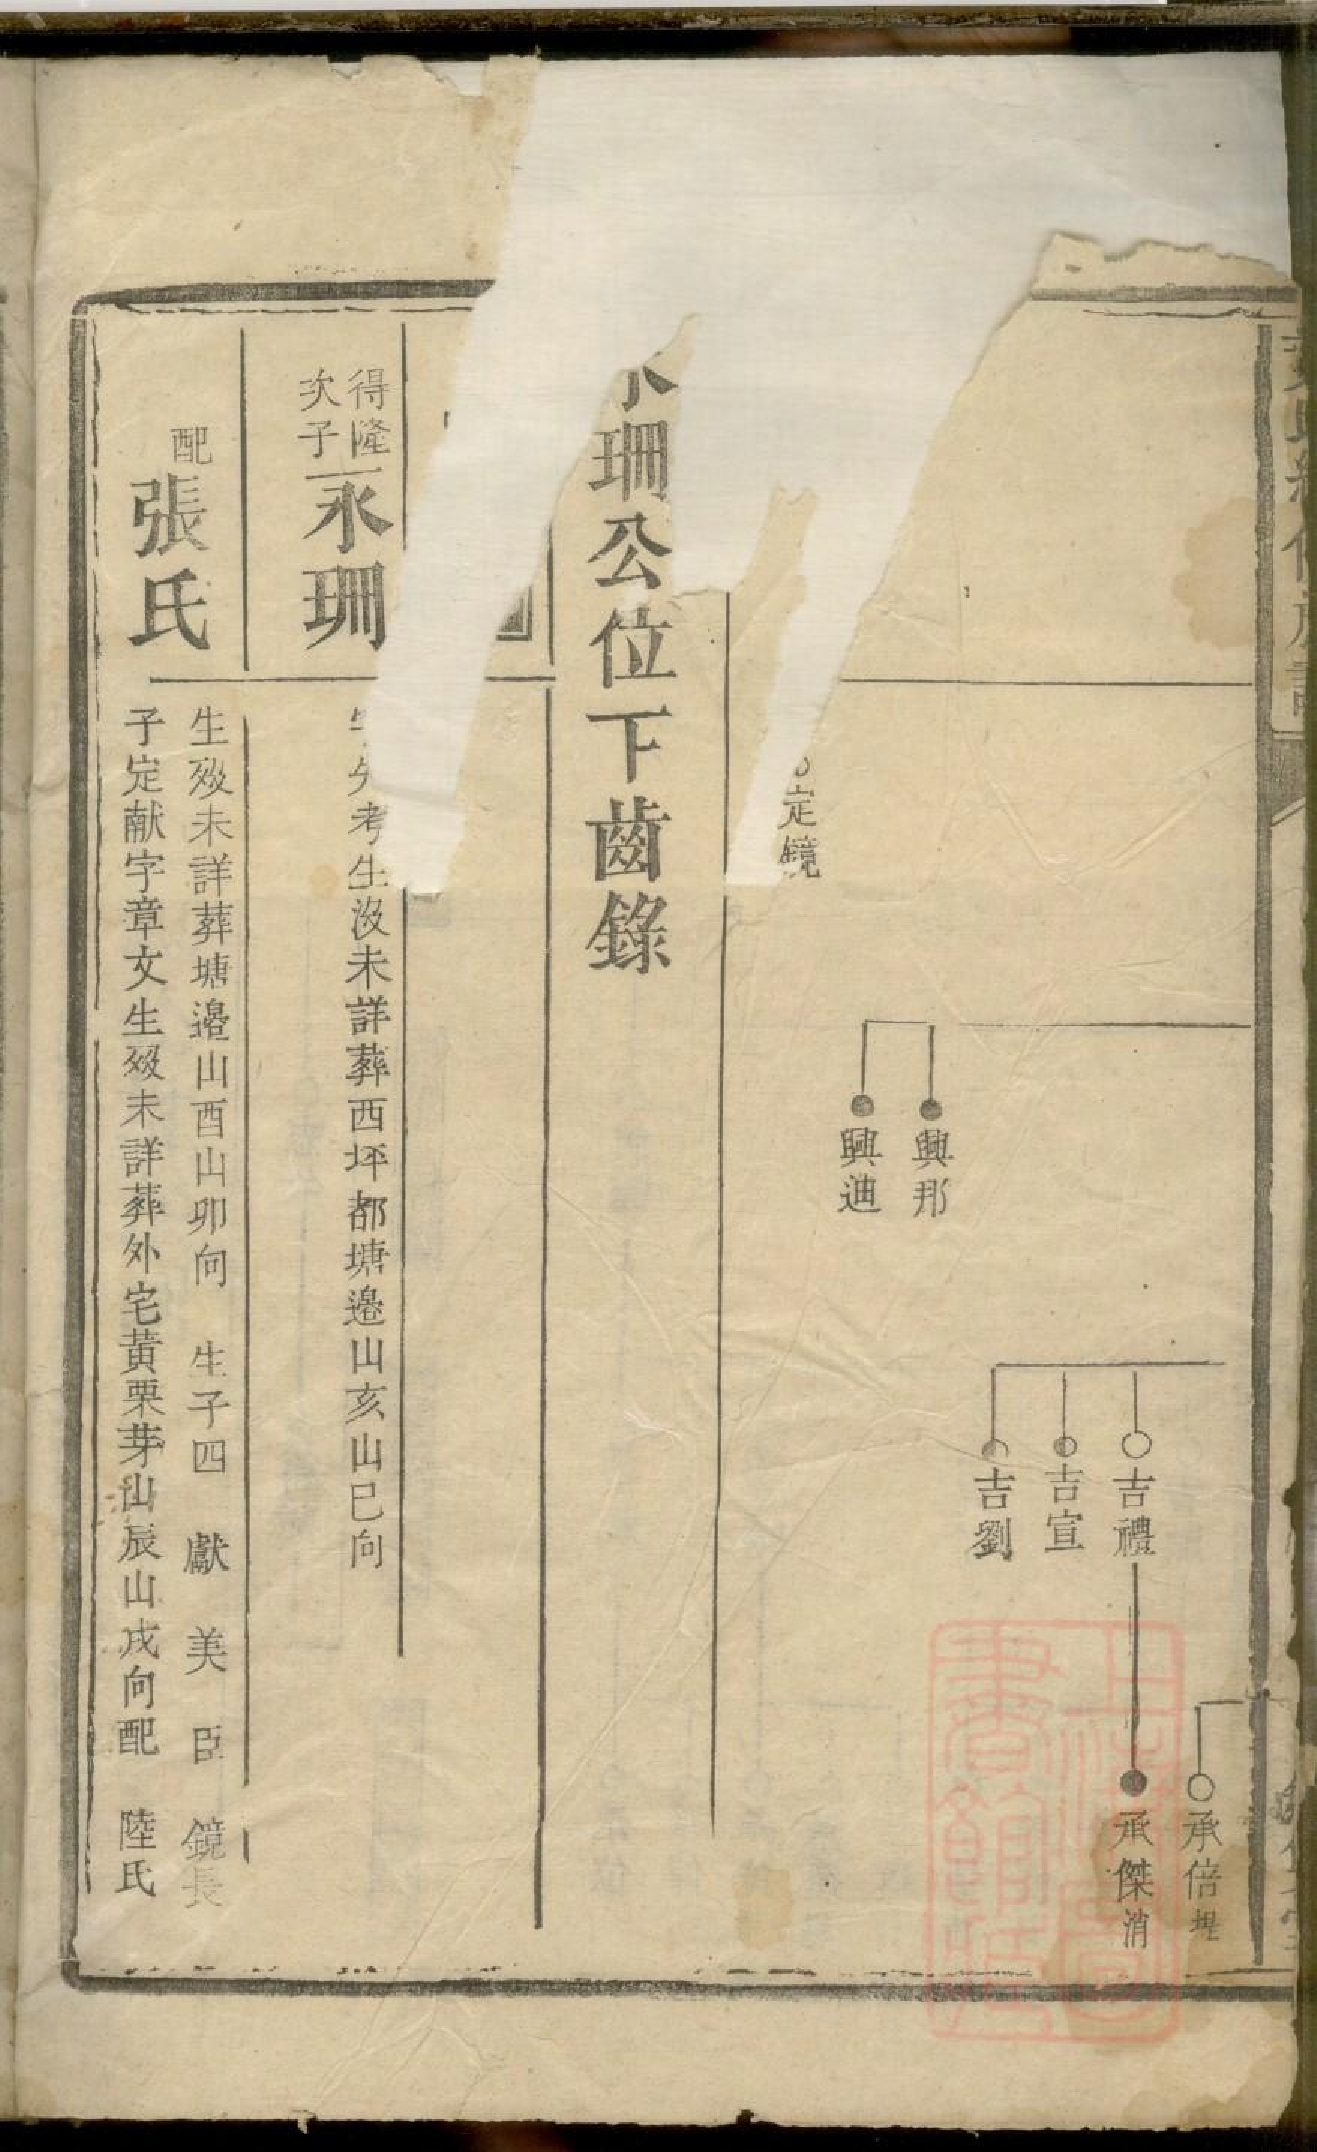 承倍
吉禮
承傑消
吉宣
吉劉
興那
興迪
定鏡
珊公位下齒錄
得隆
次子
永珊
考生歿未詳葬西坪都塘邉山亥山巳向
配
張氏
生歿未詳葬塘邉山酉山卯向 生子四 獻 美 臣 鏡長
子定献字章文生歿未詳葬外宅黃栗芽山辰山戌向配 陸氏